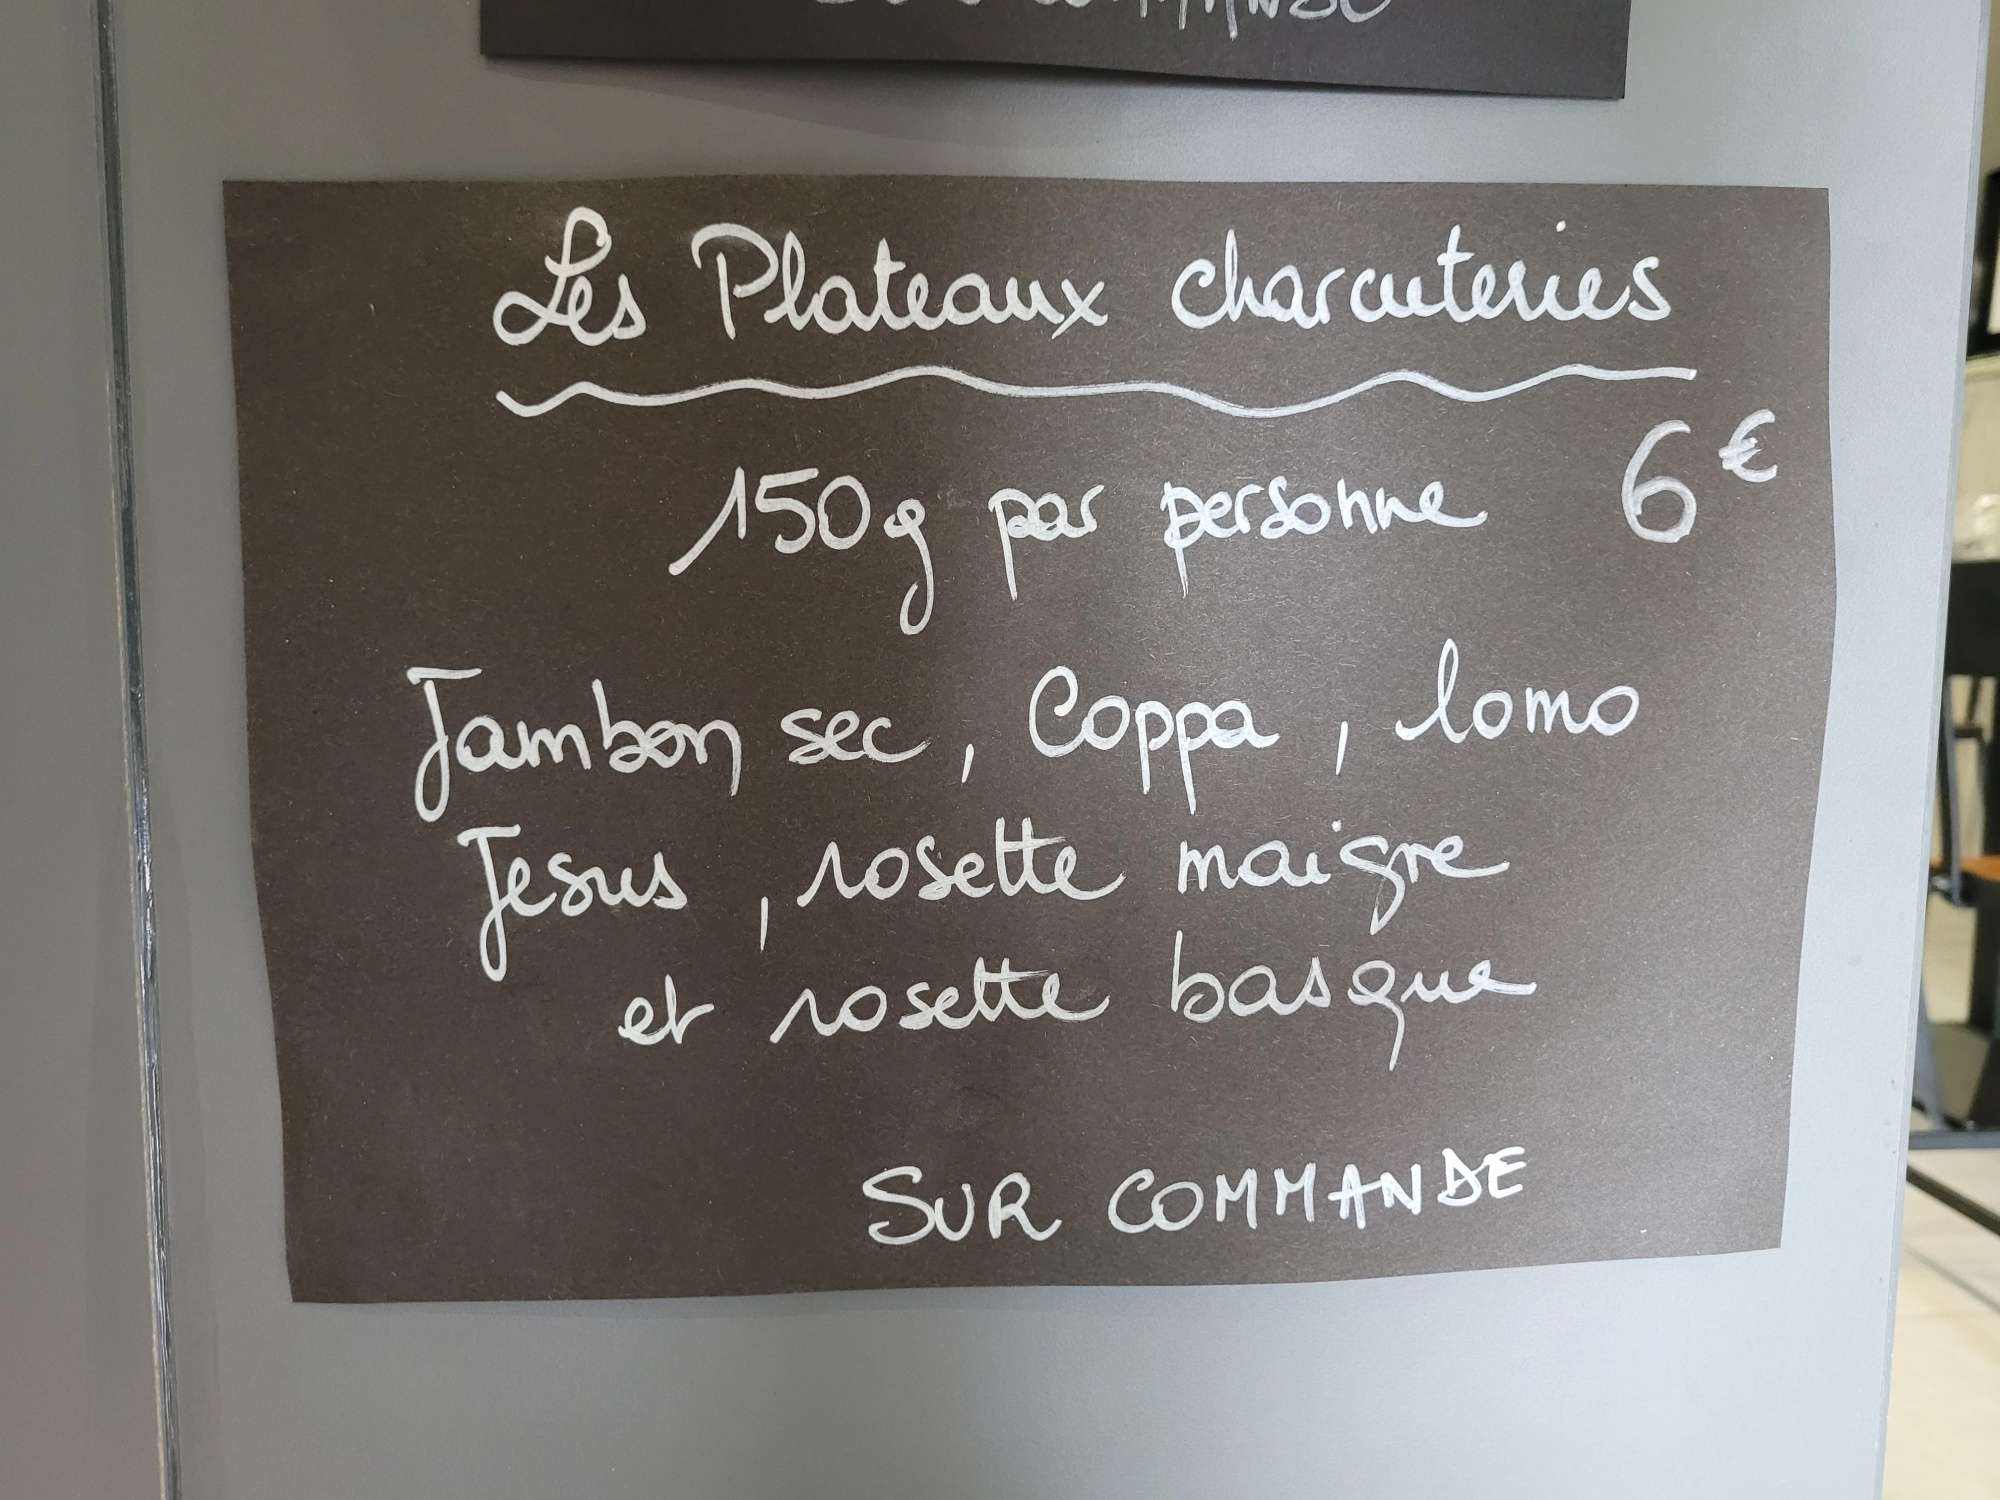 Les Plateaux charcuteries
150g par personne 6€
Jambon sec, Coppa, lomo
Jesus, rosette maigre
et rosette basque
SUR COMMANDE